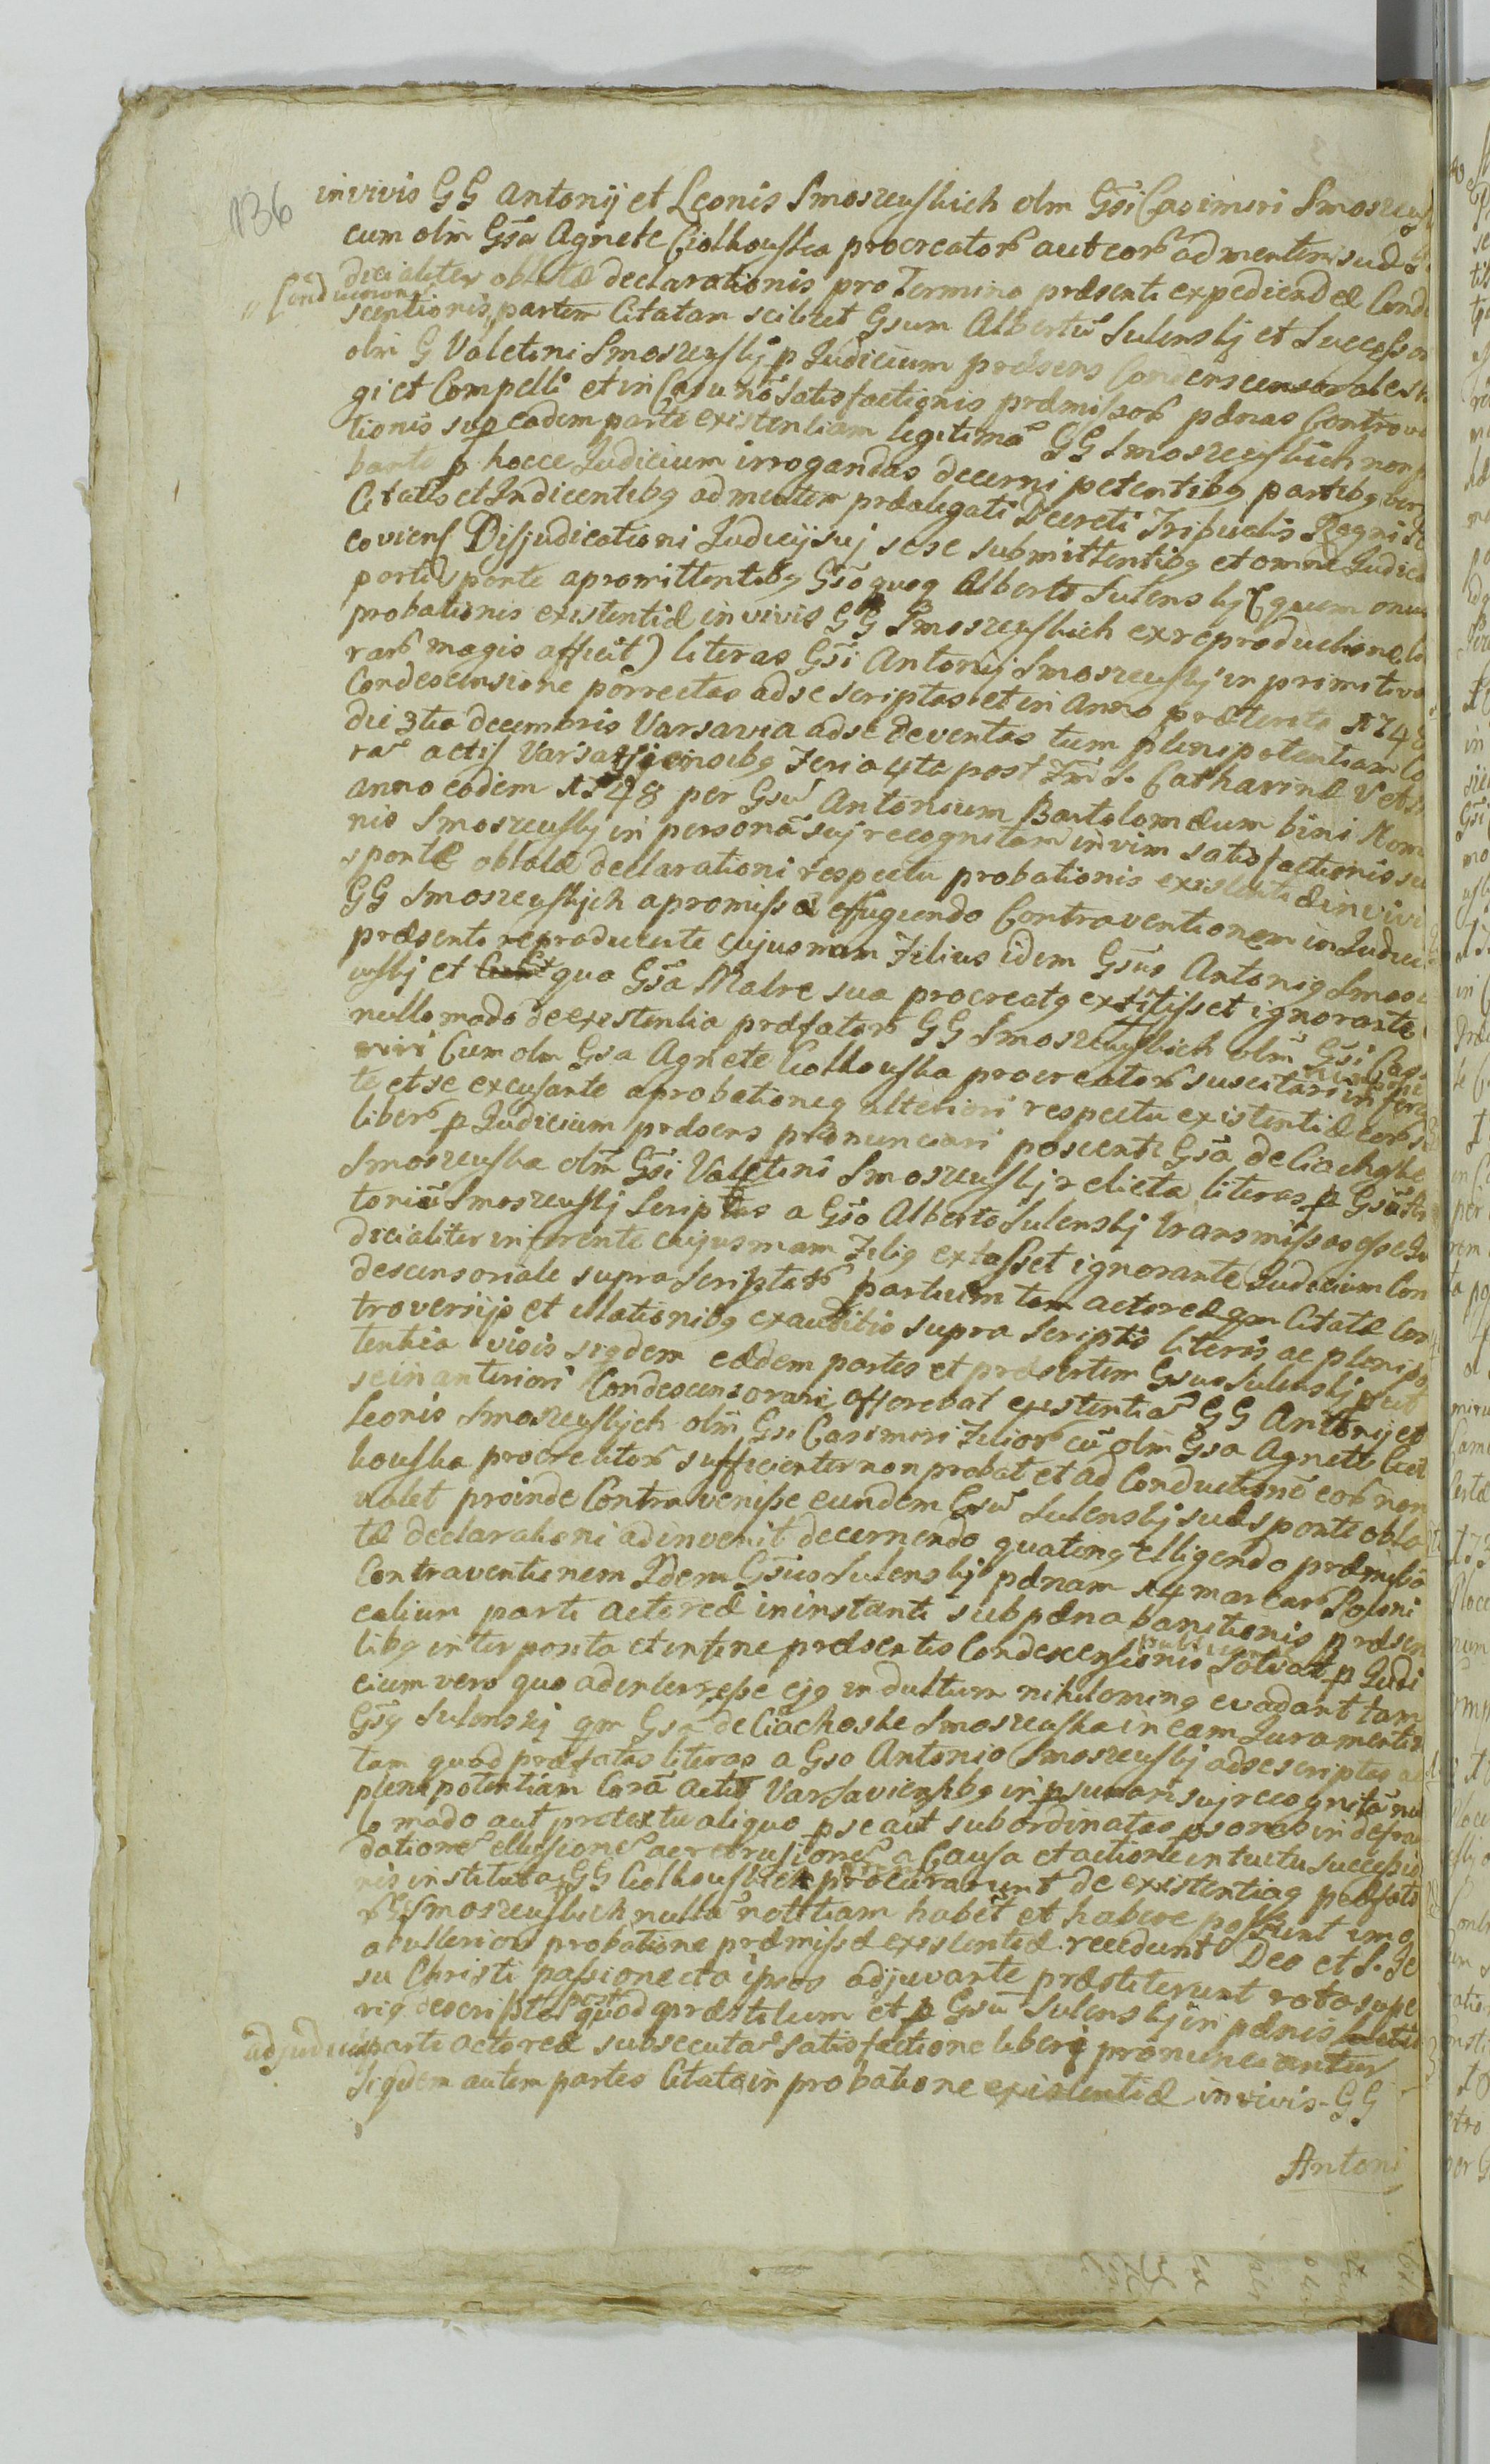 136
in vivis GG Antonij et Leonis Smoszewskich olm Gsi Casimiri Smoszews
cum olm Gsa Agnete Ciolkowska procreatoꝝ aut eoꝝ ad mentem suæ
dicialiter oblatæ declarationis pro Termino præsenti expediendæ Conde
Conductionis
scentionis, partem Citatam scilicet Gsum Albertū Sulenskj et Successor
olm G Valetini Smoszewskj p Judicium præsens Condenscensoriale
gi et Compelli et in Casu nō satisfactionis præmissoꝝ pænas Controve
tionis sup eadem parte existentiam legitimā GG Smoszewskich non p
bante p hocce Judicium irrogandas decerni petentibg partibg ver
Citatis et Indicentibg ad mentem præalegati Decreti Tribunalis Regni
coviens Disjudicationi Judicij suj sese submittentibg et omne Judicia
parte sponte apromittentibg Gsō quoq Alberto Sulenskj (quem onus
probationis existentiæ in vivis GG Smoszewskich ex reproductione
raꝝ magis afficit) literas Gsi Antonij Smoszewskj in primitiva
Condescensione porrectas ad se scriptas et in Anno præterito 1748
die 3tia decembris Varsavia ad se deventas tum plenipotentiam Co
rā actis Varsaviensibg Feria 4ta post Fm S. Catharinæ V et
anno eodem 1748 per Gsū Antonium Bartolomæum bini Nomi
nis Smoszewskj in personā suj recognitam in vim satisfactionis su
sponte oblatæ declarationi respectu probationis existentiæ in vivi
GG Smoszewskjch apromissæ effugiendo Contraventionem in Judici
præsenti reproducente cujusnam Filius idem Gsus Antonig Smosz
ewskj et qua Gsa Matre sua procreatg extitisset ignorante
nullo modo de existentia præfatoꝝ GG Smoszewskich olm Gsi Cas
miri Cum olm Gsa Agnete Ciolkowska procreatoꝝ suscitari
te et se excusante aprobationeq ulteriori respectu existentiæ eoꝝ
liberꝝ p Judicium præsens pronunciari poscente Gsa de Ciachoske
Smoszewska olm Gsi Valetini Smoszewskj relicta literas p Gsū An
toniū Smoszewskj Scriptas a Gso Alberto Sulenskj transmissas esse Ju
dicialiter inferente cujusnam Filig extasset ignorante Judicium Con
descensoriale supra Scriptaꝝ partium tam actoreæ qm Citatæ Con
troversijs et illationibg exauditis supra scriptis literis ac plenipo
tentia visis siqdem eædem partes et præsertim Gsus Sulenskj put
se in anteriori Condescensorari offerebat existentiā GG Antonij et
Leonis Smoszewskjch olm Gsi Casimiri Filioꝝ cū olm Gsa Agnete Ciol
kowska procreatoꝝ sufficienter non probat et ad Conductionē eoꝝ non
valet proinde Contravenisse eundem Gsū Sulenskj suæ sponte obla
tæ declarationi adinvenit decernendo quateng elligendo præmissā
Contraventionem Idem Gsius Sulenskj pænam 14 marcaꝝ Poloni
calium parti actoreæ in instanti sub pæna banitionis præsen
tibg interposita et in fine præsentis Condescensionis publicanda Solvat p Judi
cium vero quo ad interresse ejg indultum nihiloming evadant tam
Gsg Sulenskj qm Gsa de Ciachoske Smoszewska in eam Juramentis
tam quod præfatas literas a Gso Antonio Smoszewskj ad se scriptas a
plenipotentiam Corā actis Varsaviensibg in psonam suj recognitā nul
lo modo aut pretextu aliquo p se aut subordinatas psonas in defrau
dationē ellusionē ac retrusionē a Causa et actione intuitu successio
nis instituta GG Ciolkowskich procurarunt de existentiaq præfato
ꝝ GG Smoszewskich nullā notitiam habēt et habere possunt imo
ab ulteriori probatione præmissæ existentiæ recedunt Deo et S. Je
su Christi passione ita ipsos adjuvante præstiterunt rota supe
rig descripta post quod præstitum et p Gsū Sulenskj in pænis
adjudicatis parti actoreæ subsecutā satisfactione liberi pronunciantur
Siqdem autem partes Citatæ in probatione existentiæ in vivis GG
Antoni